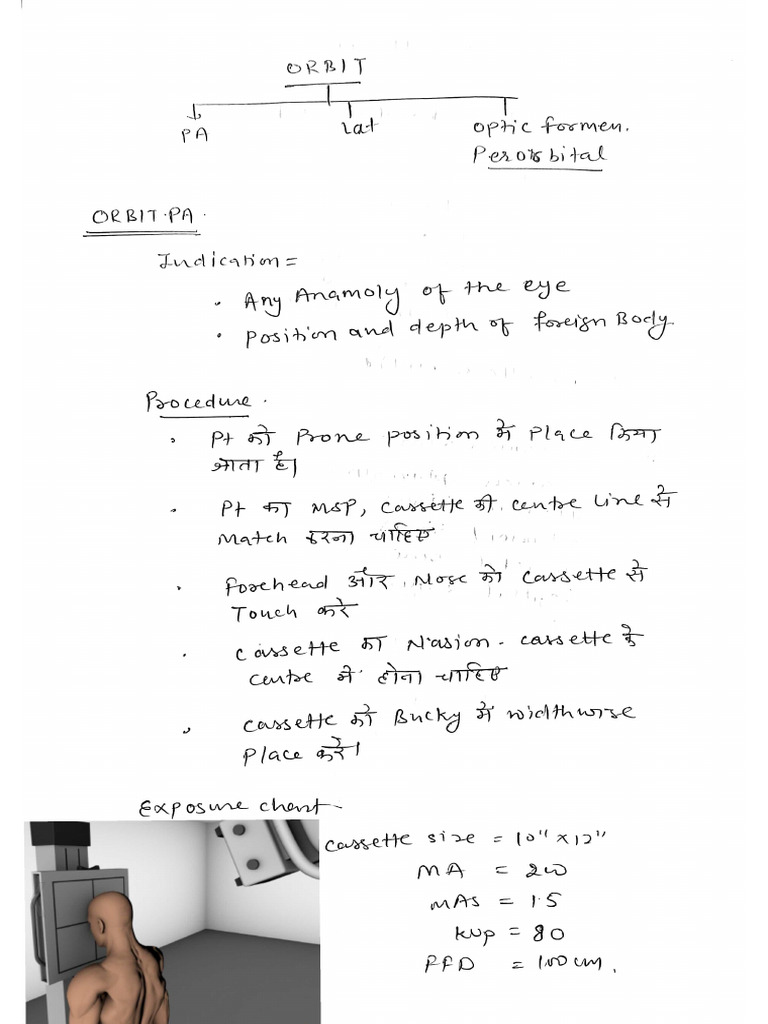 ORBIT
PA
Lat
optic formen.
Perorbital
ORBIT.PA.
Indication =
• Any Anamoly of the eye
• Position and depth of foreign Body
Procedure.
• Pt को Prone position में Place किया
जाता है।
• Pt का MSP, Cassette की centre line से
Match करना चाहिए
• forehead और Nose को cassette से
Touch करे
• cassette का Nasion - cassette के
centre में होना चाहिए
• cassette को Bucky में widthwise
Place करे।
Exposure chart-
cassette size = 10" x 12"
MA = 200
MAs = 1.5
kvp = 80
FFD = 100 cm.